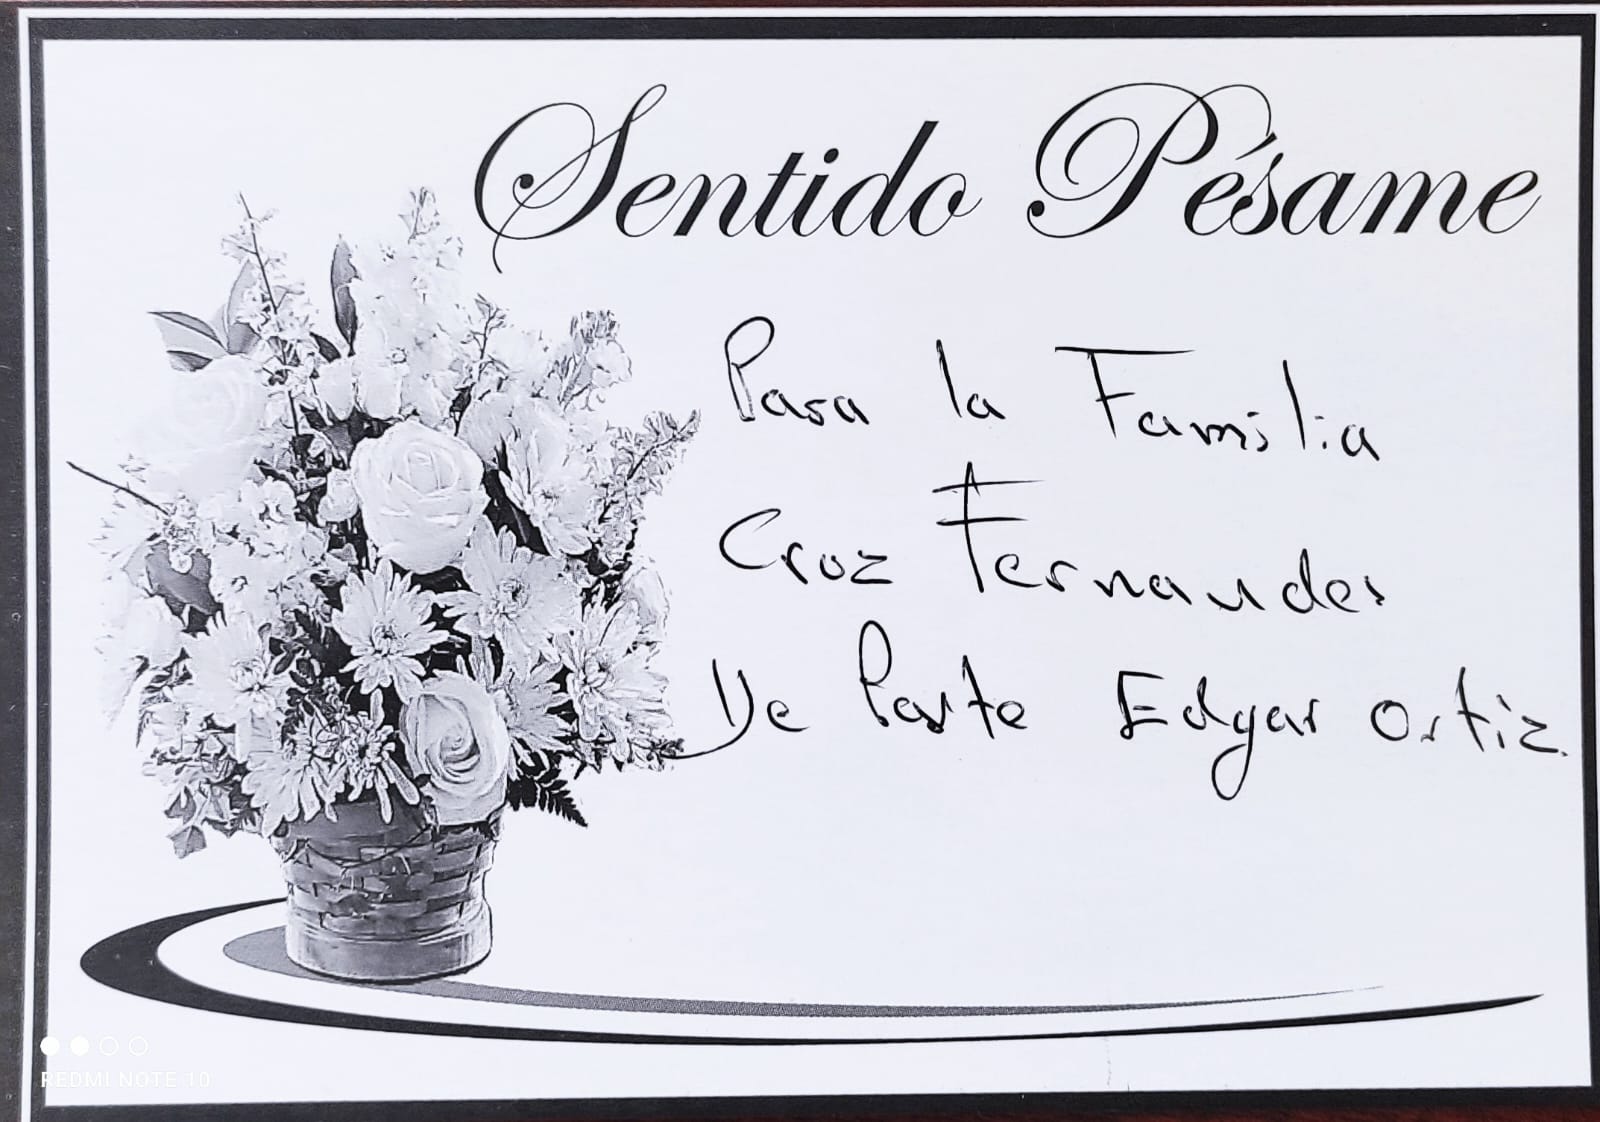 Sentido Pésame
Para la Familia
Cruz Fernandes
De Parte Edgar Ortiz.
REDMI NOTE 10